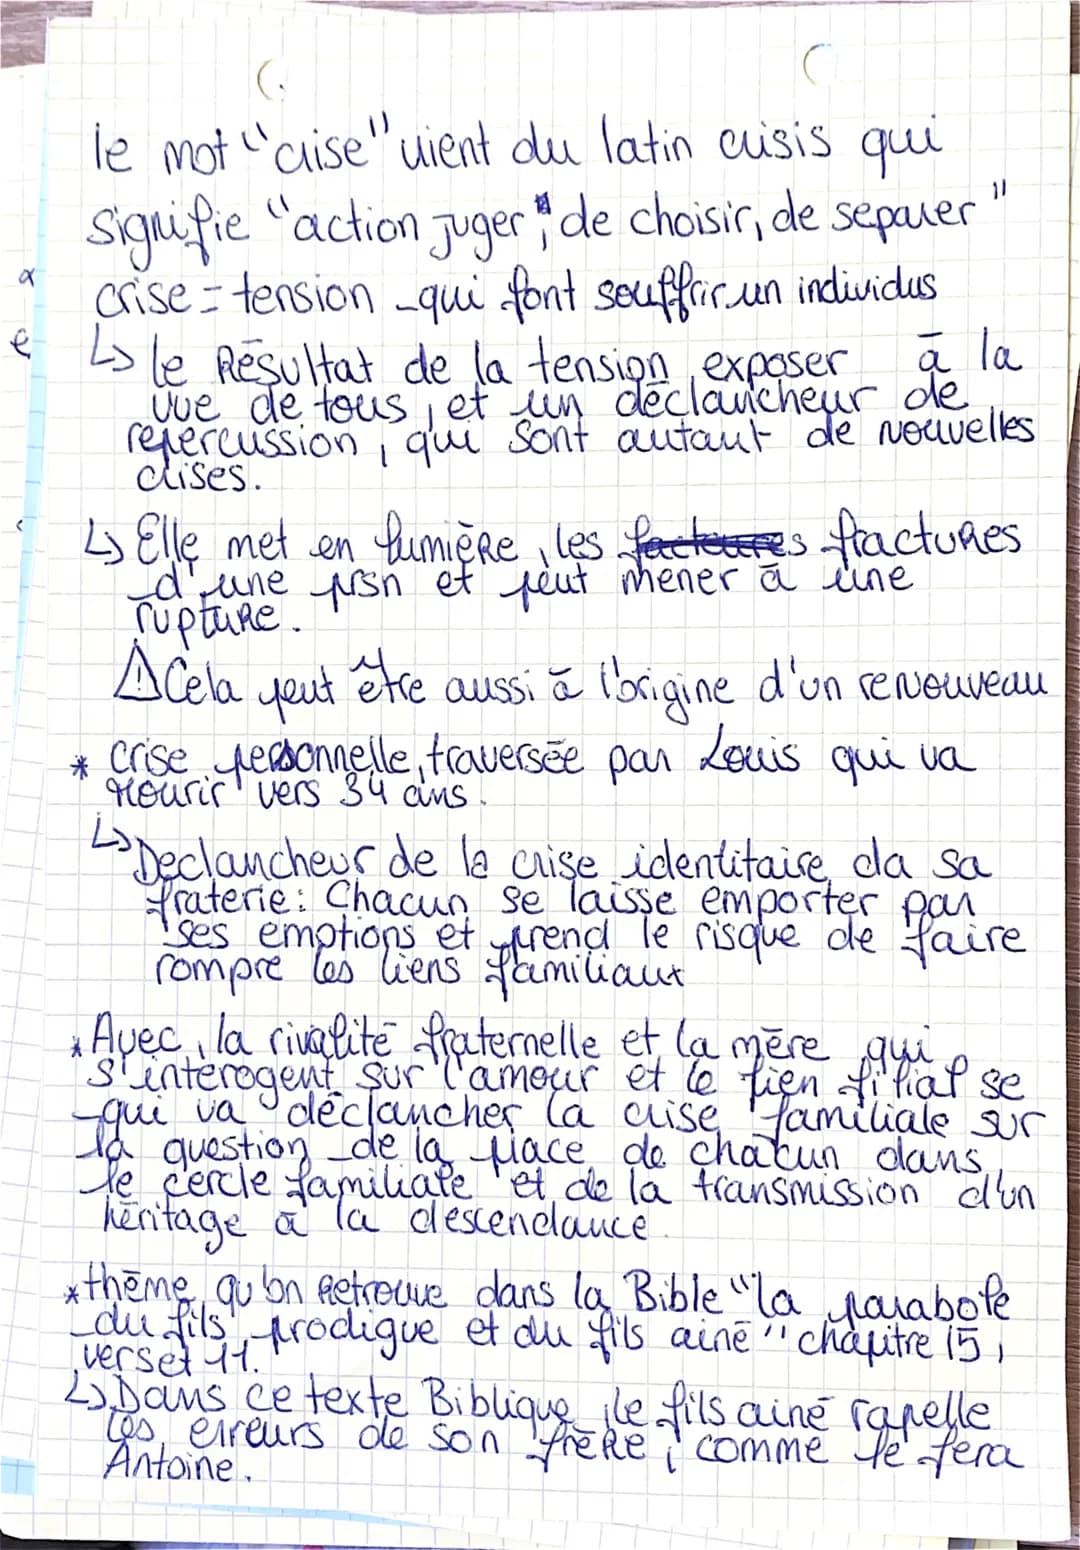 le mot "crise" vient du latin crisis qui
signifie "action juger, de choisir, de separer"
crise = tension qui font souffrir un individus
↳ le Résultat de la tension exposer à la
vue de tous, et un déclancheur de
repercussion, qui sont autant de nouvelles
crises.
↳ Elle met en lumière, les fractures
d'une prsn et peut mener à une
rupture.
⚠ Cela peut être aussi à l'origine d'un renouveau
* crise personnelle traversée par Louis qui va
mourir vers 34 ans.
↳ Declancheur de la crise identitaire da sa
fraterie : Chacun se laisse emporter par
ses emotions et prend le risque de faire
rompre les liens familiaux
* Avec, la rivalité fraternelle et la mère qui
s'interogent sur l'amour et le lien filial se
qui va déclancher la crise familiale sur
la question de la place de chacun dans
le cercle familiale et de la transmission d'un
héritage à la descendance
* thème qu'on Retrouve dans la Bible "la parabole
du fils prodigue et du fils ainé" chapitre 15,
verset 11.
↳ Dans ce texte Biblique, le fils ainé rapelle
les erreurs de son frère, comme le fera
Antoine.